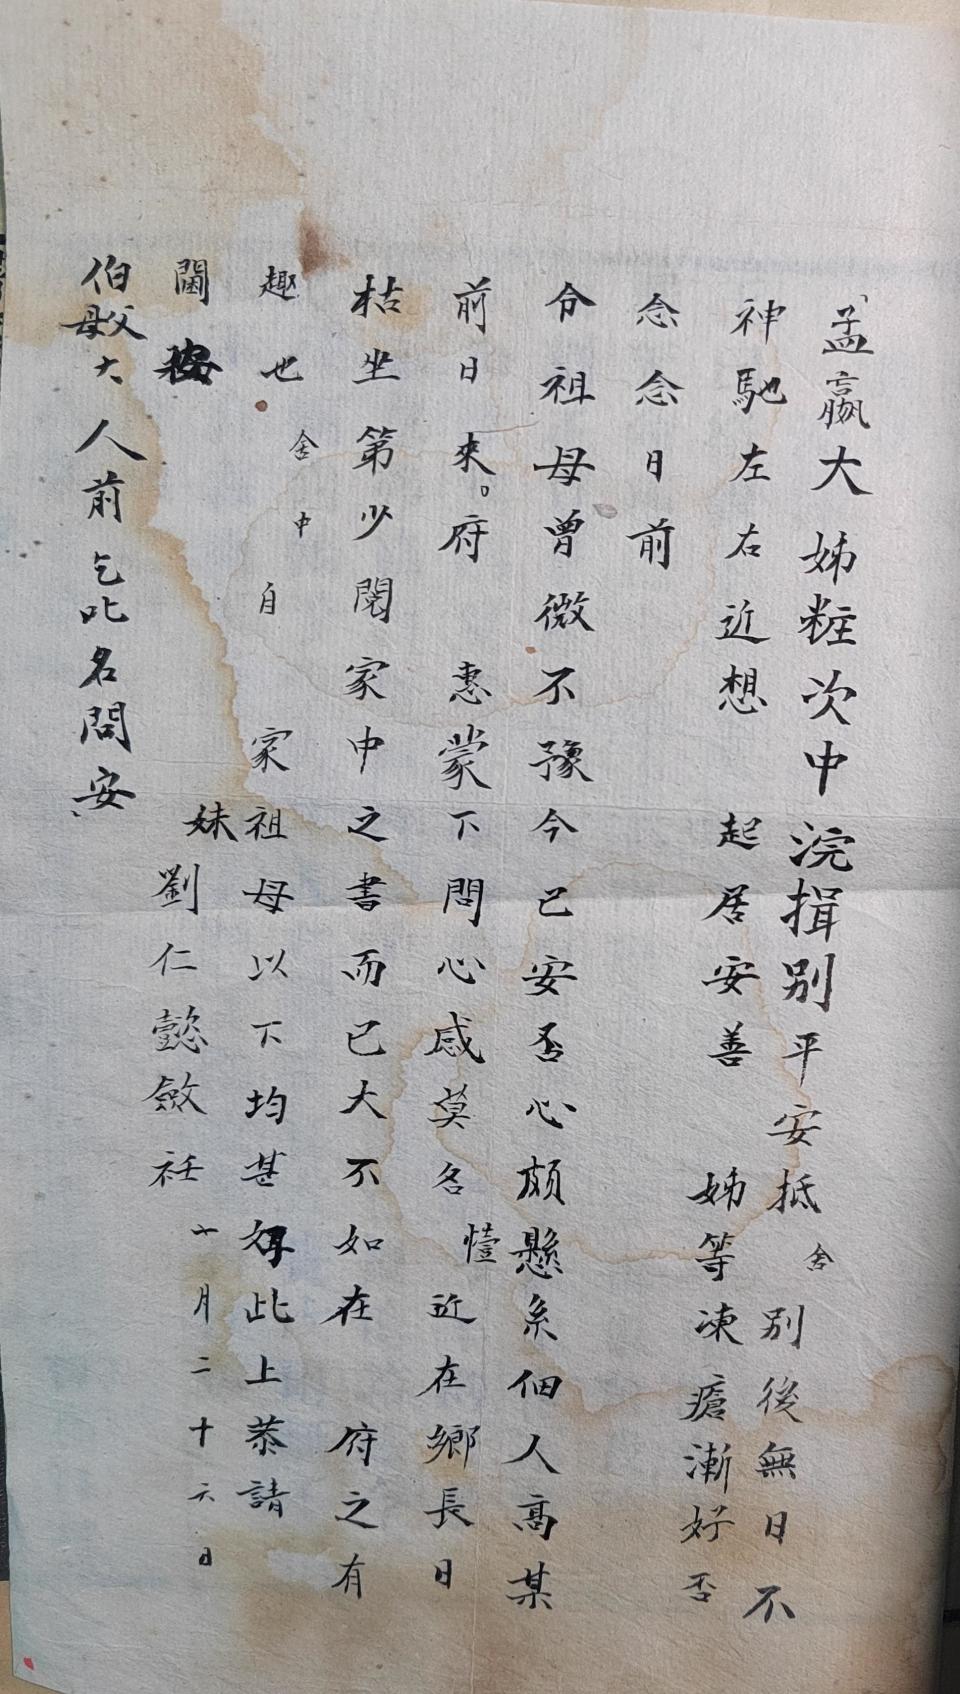 孟嬴大姊粧次中浣揖別平安抵舍別後無日不
神馳左右近想起居安善姊等凍瘡漸好否
念念日前
令祖母曾微不豫今已安否心頗懸系佃人高某
前日來。府惠蒙下問心感莫名懛近在鄉長日
枯坐第少閱家中之書而已大不如在府之有
趣也舍中自家祖母以下均甚好此上恭請
閫安
妹劉仁懿斂衽十月二十六日
伯父母大人前乞叱名問安